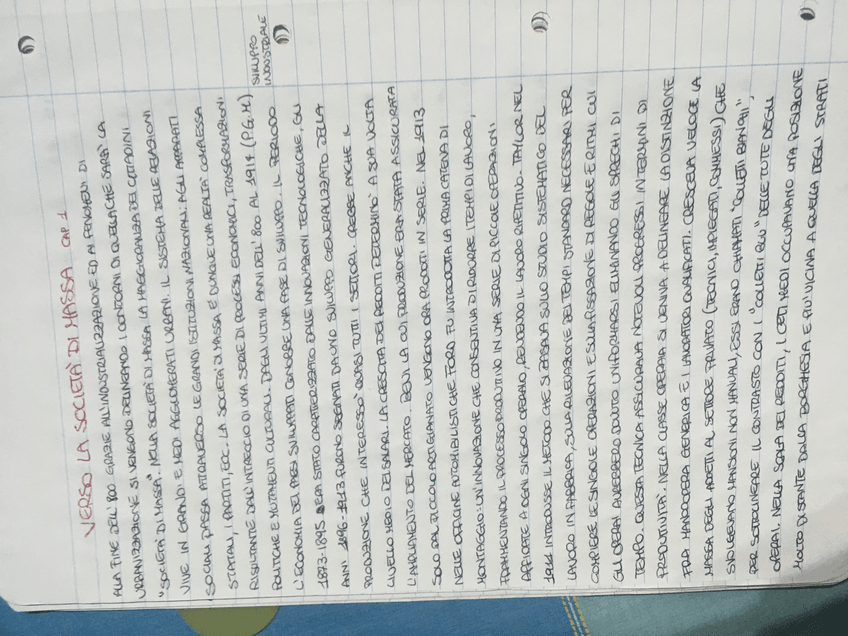 VERSO LA SOCIETÀ DI MASSA CAP. 1
ALLA FINE DELL'800 GRAZIE ALL'INDUSTRIALIZZAZIONE ED AI FENOMENI DI
URBANIZZAZIONE SI VENGONO DELINEANDO I CONTORNI DI QUELLA CHE SARA' LA
"SOCIETA' DI MASSA". NELLA SOCIETA' DI MASSA LA MAGGIORANZA DEI CITTADINI
VIVE IN GRANDI E MEDI AGGLOMERATI URBANI. IL SISTEMA DELLE RELAZIONI
SOCIALI PASSA ATTRAVERSO LE GRANDI ISTITUZIONI NAZIONALI: AGLI APPARATI
STATALI, I PARTITI, ECC. LA SOCIETÀ DI MASSA E' DUNQUE UNA REALTA' COMPLESSA
RISULTANTE DALL'INTRECCIO DI UNA SERIE DI PROCESSI ECONOMICI, TRASFORMAZIONI
POLITICHE E MUTAMENTI CULTURALI. DAGLI ULTIMI ANNI DELL'800 AL 1914 (P.G.M.)
SVILUPPO
INDUSTRIALE
L'ECONOMIA DEI PAESI SVILUPPATI CONOBBE UNA FASE DI SVILUPPO. IL PERIODO
1873-1895 ERA STATO CARATTERIZZATO DALLE INNOVAZIONI TECNOLOGICHE, GLI
ANNI 1896-1913 FURONO SEGNATI DA UNO SVILUPPO GENERALIZZATO DELLA
PRODUZIONE CHE INTERESSO' QUASI TUTTI I SETTORI. CREBBE ANCHE IL
LIVELLO MEDIO DEI SALARI. LA CRESCITA DEI REDDITI DETERMINO' A SUA VOLTA
L'AMPLIAMENTO DEL MERCATO. BENI LA CUI PRODUZIONE ERA STATA ASSICURATA
SOLO DAL PICCOLO ARTIGIANATO VENGONO ORA PRODOTTI IN SERIE. NEL 1913
NELLE OFFICINE AUTOMOBILISTICHE FORD FU INTRODOTTA LA PRIMA CATENA DI
MONTAGGIO: UN'INNOVAZIONE CHE CONSENTIVA DI RIDURRE I TEMPI DI LAVORO,
FRAMMENTANDO IL PROCESSO PRODUTTIVO IN UNA SERIE DI PICCOLE OPERAZIONI
AFFIDATE A OGNI SINGOLO OPERAIO, RENDENDO IL LAVORO RIPETITIVO. TAYLOR NEL
1911 INTRODUSSE IL METODO CHE SI BASAVA SULLO STUDIO SISTEMATICO DEL
LAVORO IN FABBRICA, SULLA RILEVAZIONE DEI TEMPI STANDARD NECESSARI PER
COMPIERE LE SINGOLE OPERAZIONI E SULLA FISSAZIONE DI REGOLE E RITMI CUI
GLI OPERAI AVREBBERO DOVUTO UNIFORMARSI ELIMINANDO GLI SPRECHI DI
TEMPO. QUESTA TECNICA ASSICURAVA NOTEVOLI PROGRESSI IN TERMINI DI
PRODUTTIVITÀ. NELLA CLASSE OPERAIA SI VENIVA A DELINEARE LA DISTINZIONE
FRA MANODOPERA GENERICA E I LAVORATORI QUALIFICATI. CRESCEVA VELOCE LA
MASSA DEGLI ADDETTI AL SETTORE PRIVATO (TECNICI, IMPIEGATI, COMMESSI) CHE
SVOLGEVANO MANSIONI NON MANUALI, ESSI ERANO CHIAMATI "COLLETTI BIANCHI",
PER SOTTOLINEARE IL CONTRASTO CON I "COLLETTI BLU" DELLE TUTE DEGLI
OPERAI. NELLA SCALA DEI REDDITI, I CETI MEDI OCCUPAVANO UNA POSIZIONE
MOLTO DISTANTE DALLA BORGHESIA E PIU' VICINA A QUELLA DEGLI STRATI